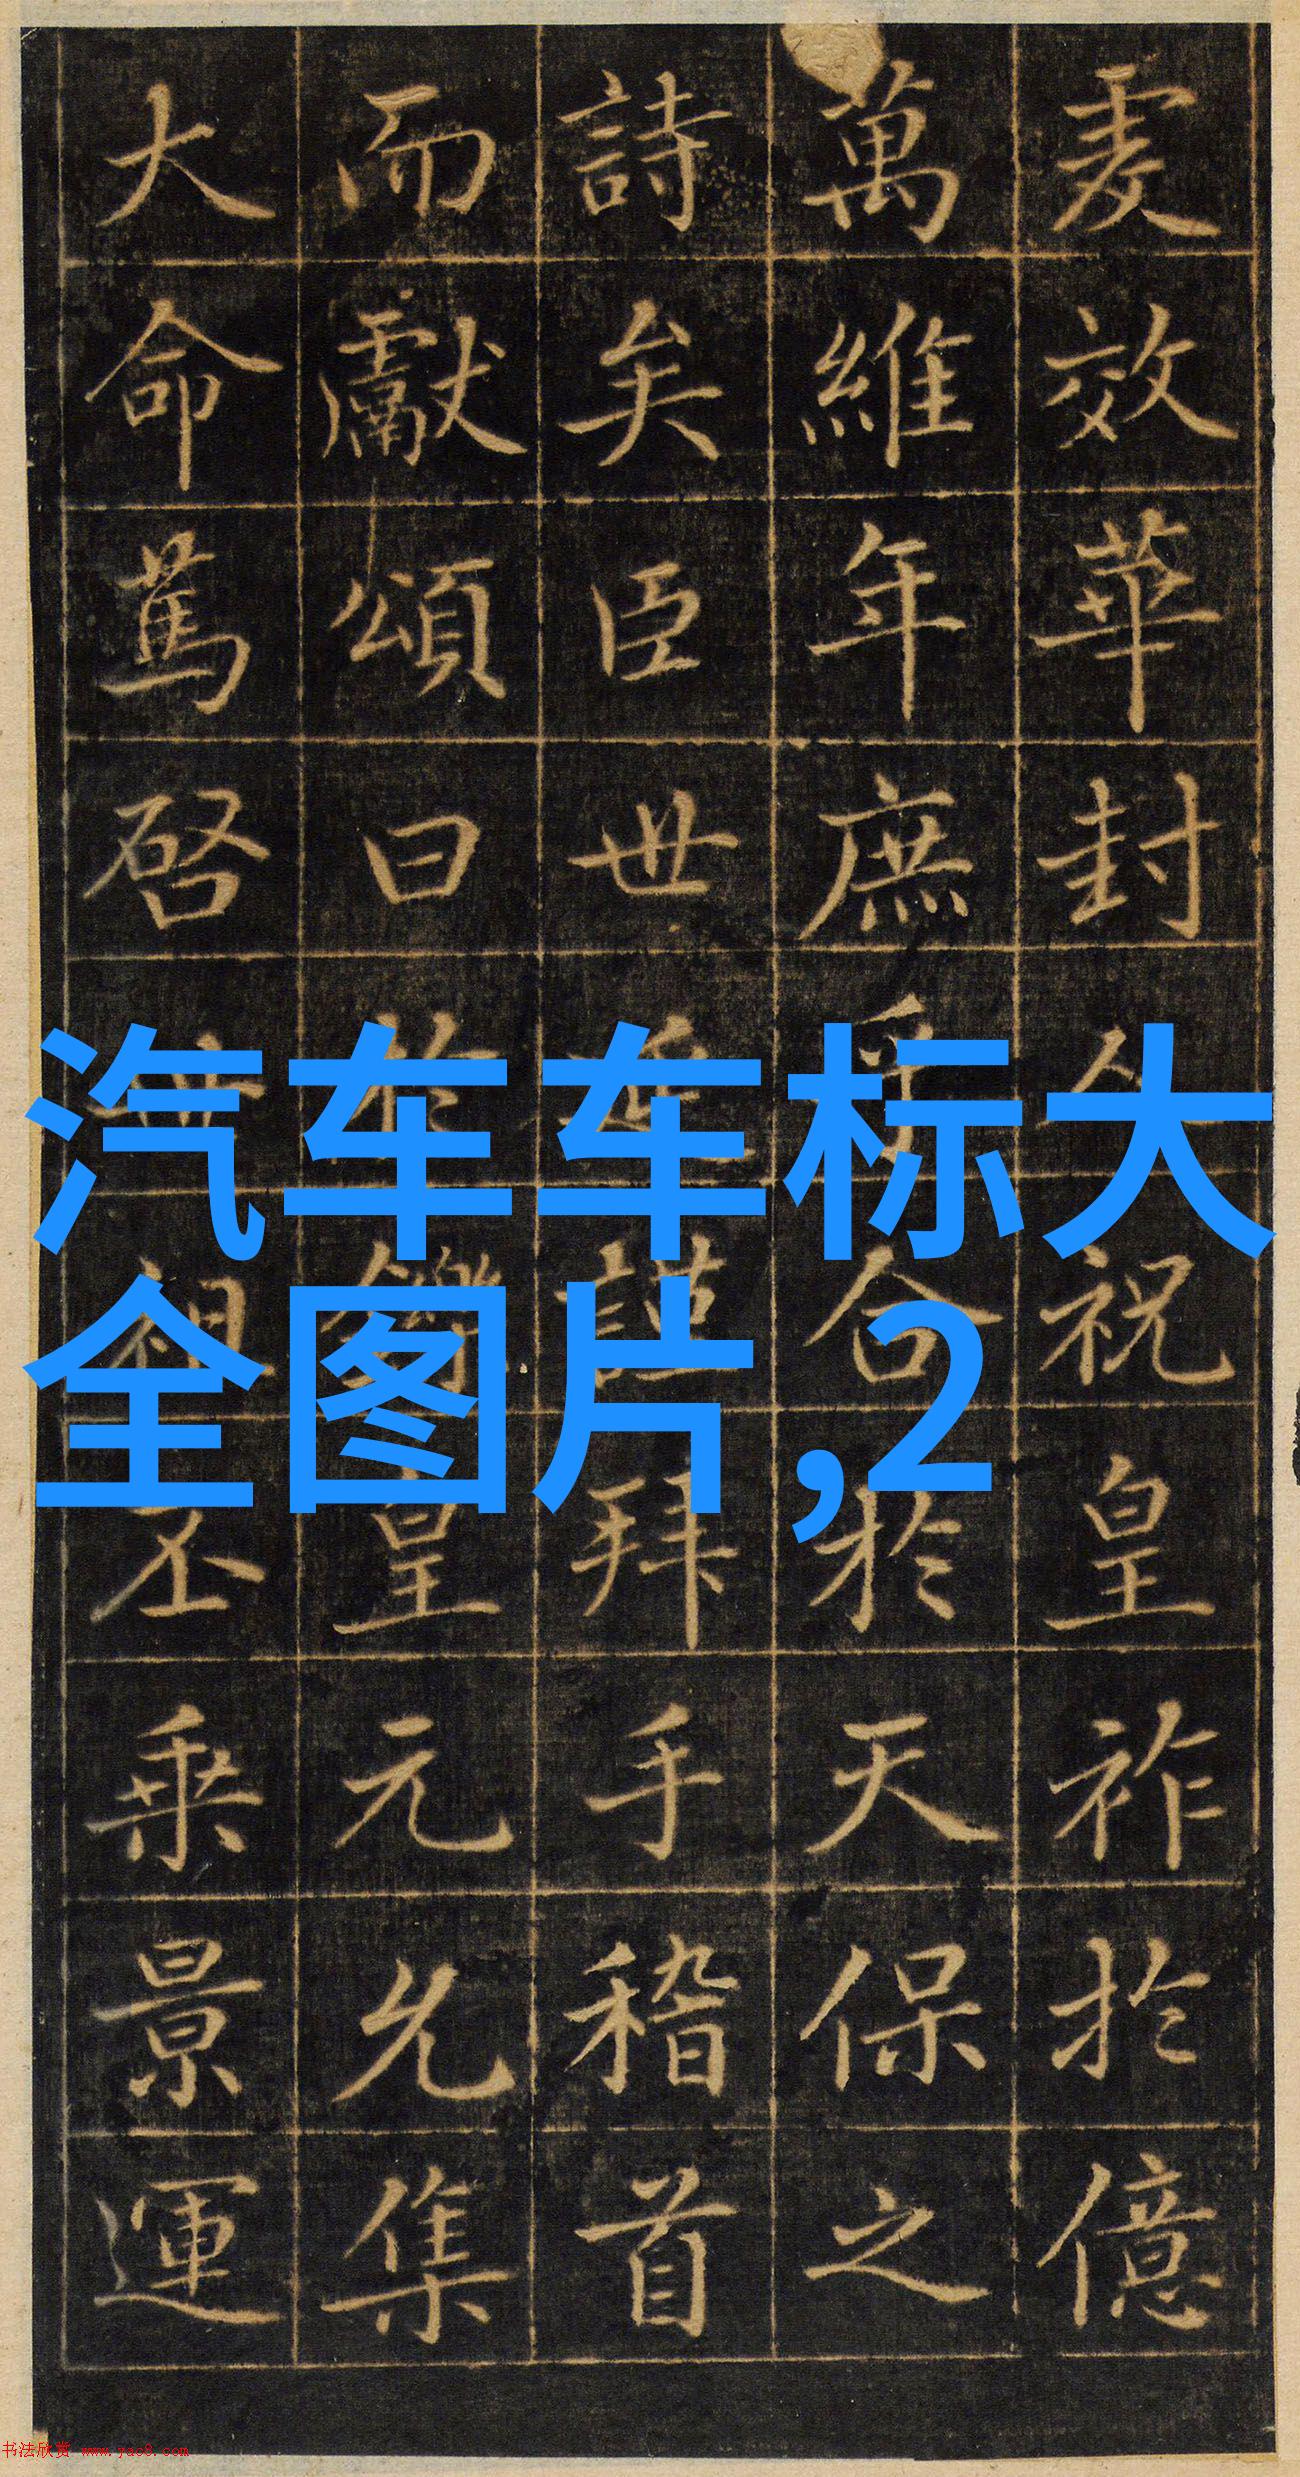 爰效華封祝皇祚於億
萬維年庶乎合於天保之
詩矣臣世延謹拜手稽首
而獻頌曰於鑠皇元允集
大命篤啓世祖丕乘景運
汽车车标大
全图片,2
书法欣赏 www.yac8.com